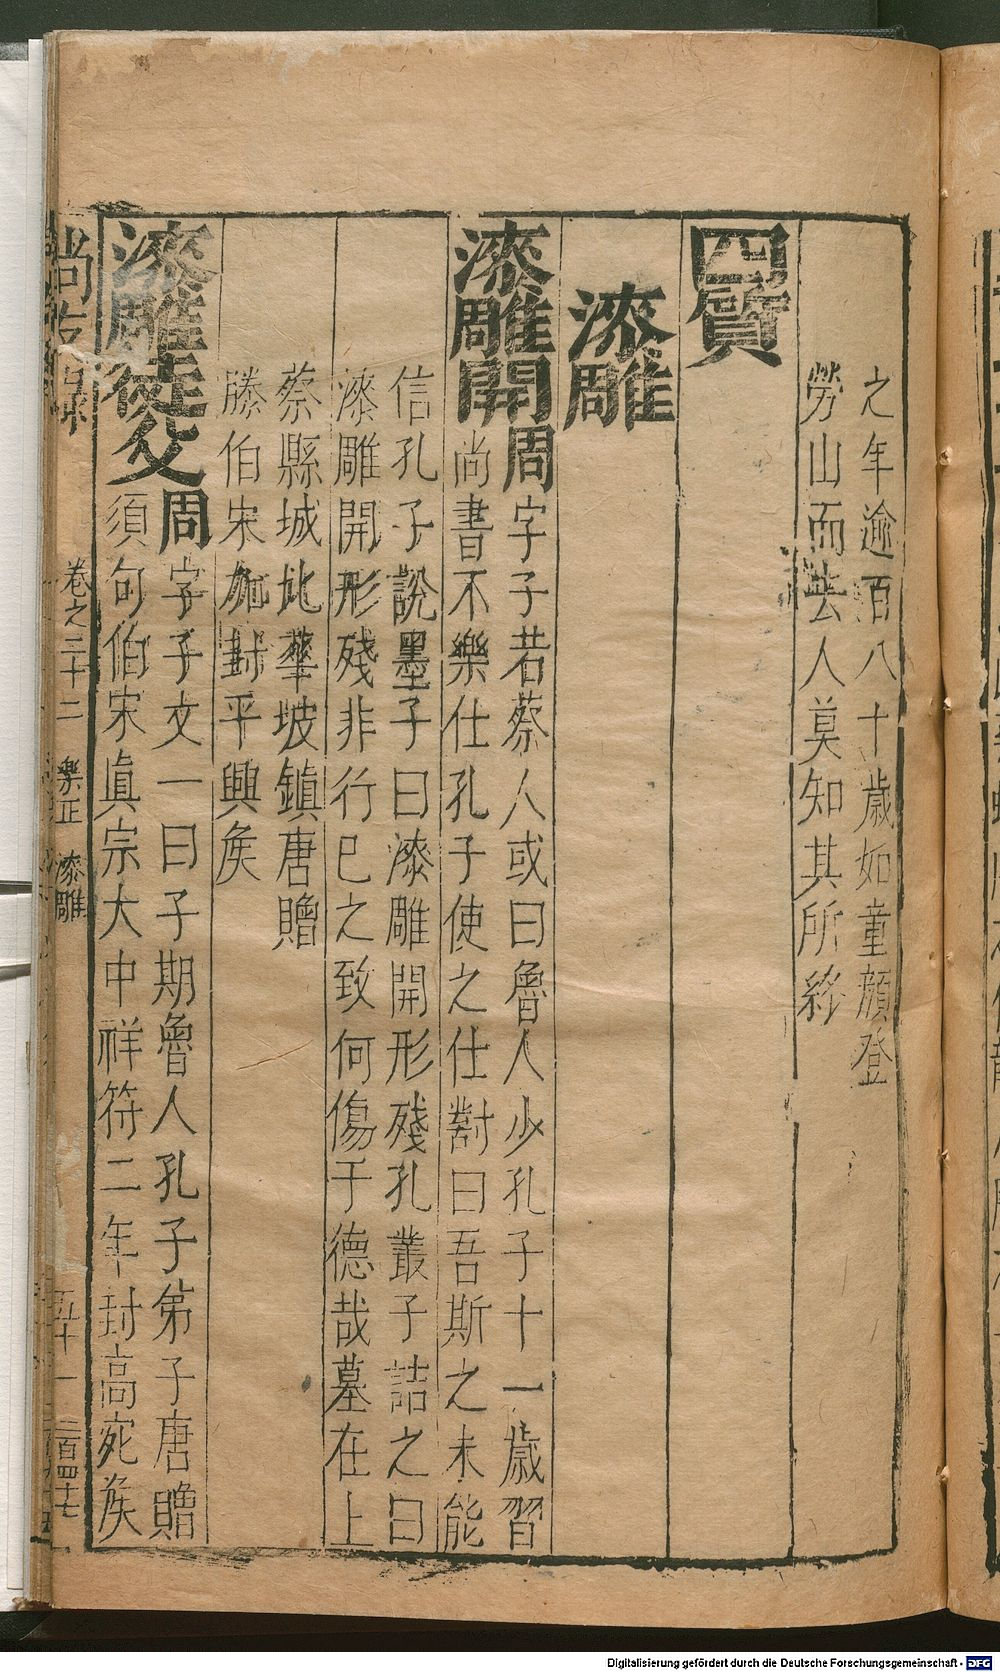 之年逾百八十歳如童顔登
勞山而去人莫知其所終
四質
漆雕
漆雕開周字子若蔡人或曰魯人少孔子十一歲習
尚書不樂仕孔子使之仕對曰吾斯之未能
信孔子說墨子曰漆雕開形殘孔叢子詰之曰
漆雕開形殘非行己之致何傷于德哉墓在上
蔡縣城北華坡鎮唐贈
滕伯宋加封平輿矦
漆雕徒父周字子文一曰子期魯人孔子弟子唐贈
須句伯宋眞宗大中祥符二年封高宛矦
尚友錄 卷之二十二 樂正 漆雕 五十一 二百四十七
Digitalisierung gefördert durch die Deutsche Forschungsgemeinschaft - DFG